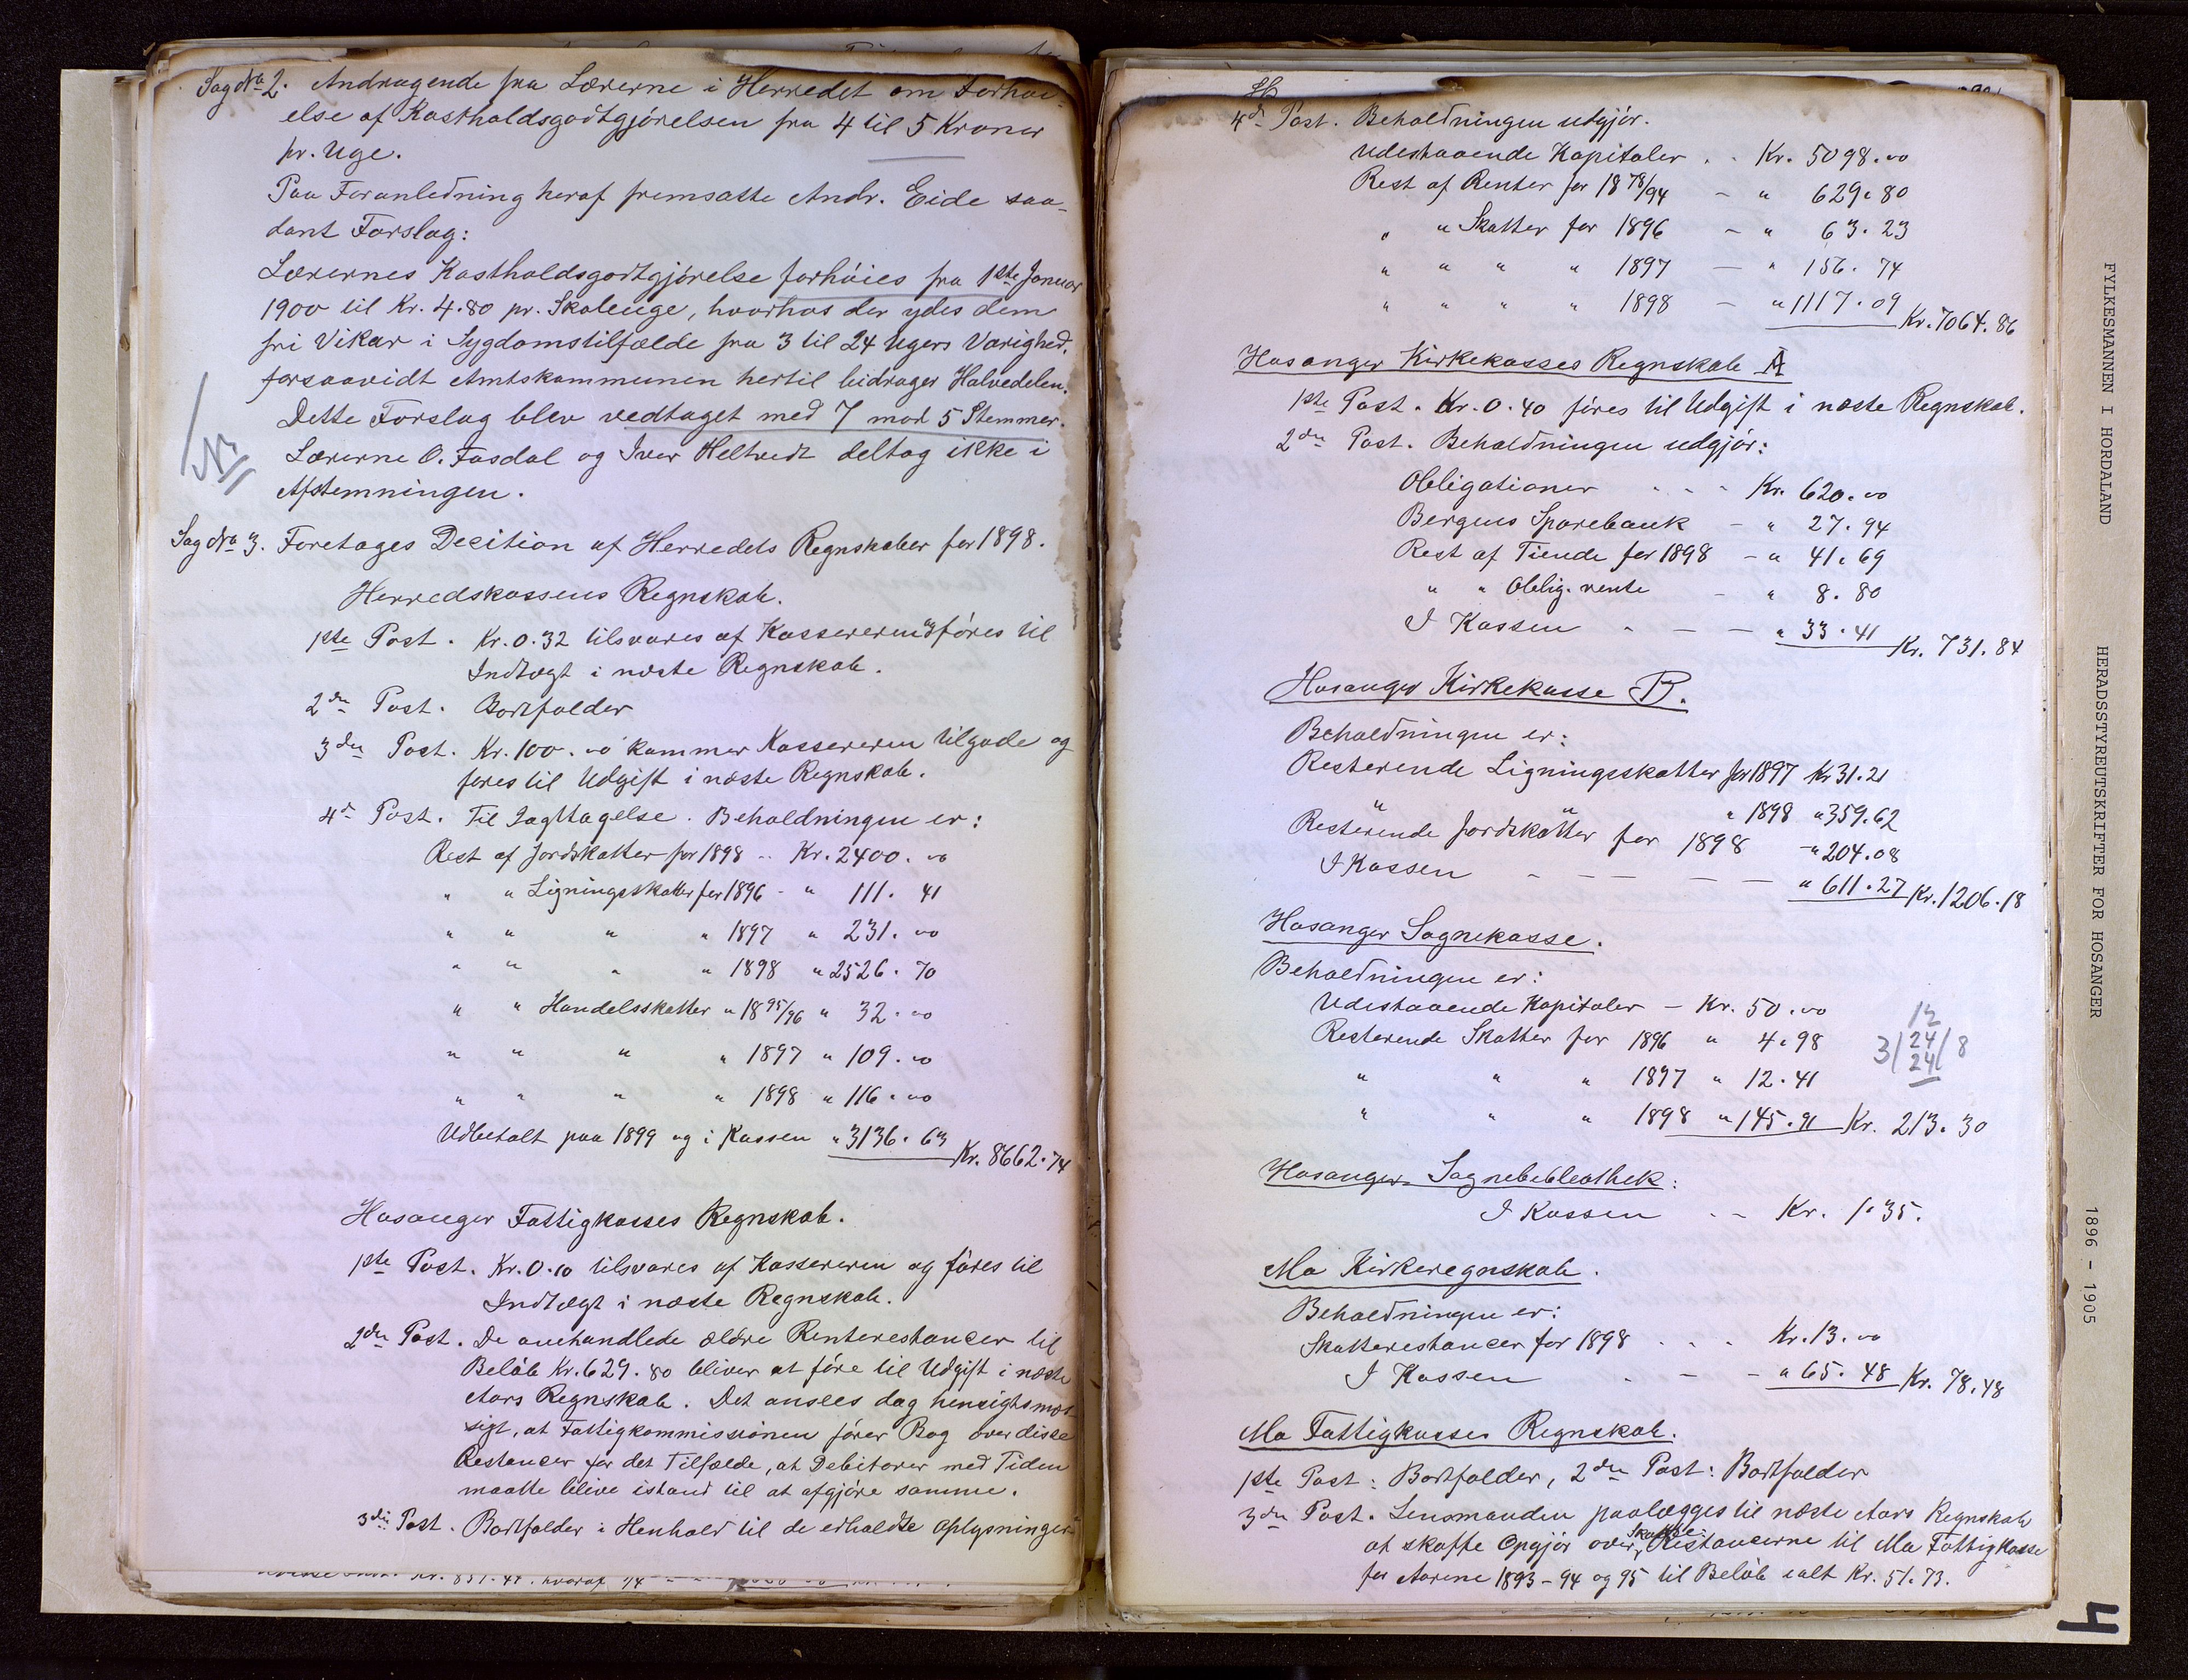 Sag No 2. Andragende fra Lærerne i Herredet om Forhøi-
else af Kostholdsgodtgjørelsen fra 4 til 5 Kroner
pr. Uge.
Paa Foranledning heraf fremsatte Andr. Eide saa-
dant Forslag:
Lærernes Kostholdsgodtgjørelse forhøies fra 1ste Januar
1900 til Kr. 4.80 pr. Skoleuge, hvorhos der ydes dem
fri Vikar i Sygdomstilfælde fra 3 til 24 Ugers Varighed,
forsaavidt Amtskommunen hertil bidrager Halvedelen.
Dette Forslag blev vedtaget med 7 mod 5 Stemmer.
Lærerne O. Fosdal og Iver Heltvedt deltog ikke i
Afstemningen.
Sag No 3. Foretages Decition af Herredets Regnskaber for 1898.
Herredskassens Regnskab.
1ste Post. Kr. 0.32 tilsvares af Kassereren og føres til
Indtægt i næste Regnskab.
2den Post. Bortfalder
3den Post. Kr. 100.00 kommer Kassereren tilgode og
føres til Udgift i næste Regnskab.
4de Post. Til Iagttagelse. Beholdningen er:
Rest af Jordskatter for 1898 .. Kr. 2400.00
" " Ligningsskatter for 1896 - " 111. 41
" " " " 1897 " 231.00
" " " " 1898 " 2526.70
" " Handelsskatter " 1895/96 " 32.00
" " " " 1897 " 109.00
" " " " 1898 " 116.00
Udbetalt paa 1899 og i Kassen " 3136.63 Kr. 8662.74
Hosanger Fattigkasses Regnskab.
1ste Post. Kr. 0.10 tilsvares af Kassereren og føres til
Indtægt i næste Regnskab.
2den Post. De omhandlede ældre Renterestancer til
Beløb Kr. 629.80 bliver at føre til Udgift i næste
Aars Regnskab. Det ansees dog hensigtsmæs-
sigt, at Fattigkommissionen fører Bog over disse
Restancer for det Tilfælde, at Debitorer med Tiden
maatte blive istand til at afgjøre samme.
3die Post. Bortfalder i Henhold til de erholdte Oplysninger.
4de Post. Beholdningen udgjør.
Udestaaende Kapitaler . . Kr. 5098.00
Rest af Renter for 1878/94 - " 629.80
" " Skatter for 1896 - " 63.23
" " " " 1897 - " 156.74
" " " " 1898 - " 1117.09 Kr. 7064.86
Hosanger Kirkekasses Regnskab A
1ste Post. Kr. 0.40 føres til Udgift i næste Regnskab.
2den Post. Beholdningen udgjør:
Obligationer . . . Kr. 620.00
Bergens Sparebank - " 27.94
Rest af Tiende for 1898 - " 41.69
" " Oblig. rente - " 8.80
I Kassen . - - " 33.41 Kr. 731.84
Hosanger Kirkekasse B.
Beholdningen er:
Resterende Ligningsskatter for 1897 Kr 31.21
" " " 1898 " 359.62
Resterende Jordskatter for 1898 - " 204.08
I Kassen - - - - - " 611.27 Kr. 1206.18
Hosanger Sognekasse.
Beholdningen er:
Udestaaende Kapitaler - Kr. 50.00
Resterende Skatter for 1896 " 4.98
" " " 1897 " 12.41
" " " 1898 " 145.91 Kr. 213.30
12
3/24/8
24
Hosanger Sognebibliothek:
I Kassen .. Kr. 1.35.
Mo Kirkeregnskab.
Beholdningen er:
Skatterestancer for 1898 . . . Kr. 13.00
I Kassen . - - " 65.48 Kr. 78.48
Mo Fattigkasses Regnskab.
1ste Post: Bortfalder, 2den Post: Bortfalder
3den Post. Lensmanden paalægges til næste Aars Regnskab
at skaffe Opgjør over Skatte Restancerne til Mo Fattigkasse
for Aarene 1893-94 og 95 til Beløb ialt Kr. 51.73.
FYLKESMANNEN I HORDALAND
HERADSSTYREUTSKRIFTER FOR HOSANGER
1896 - 1905
4